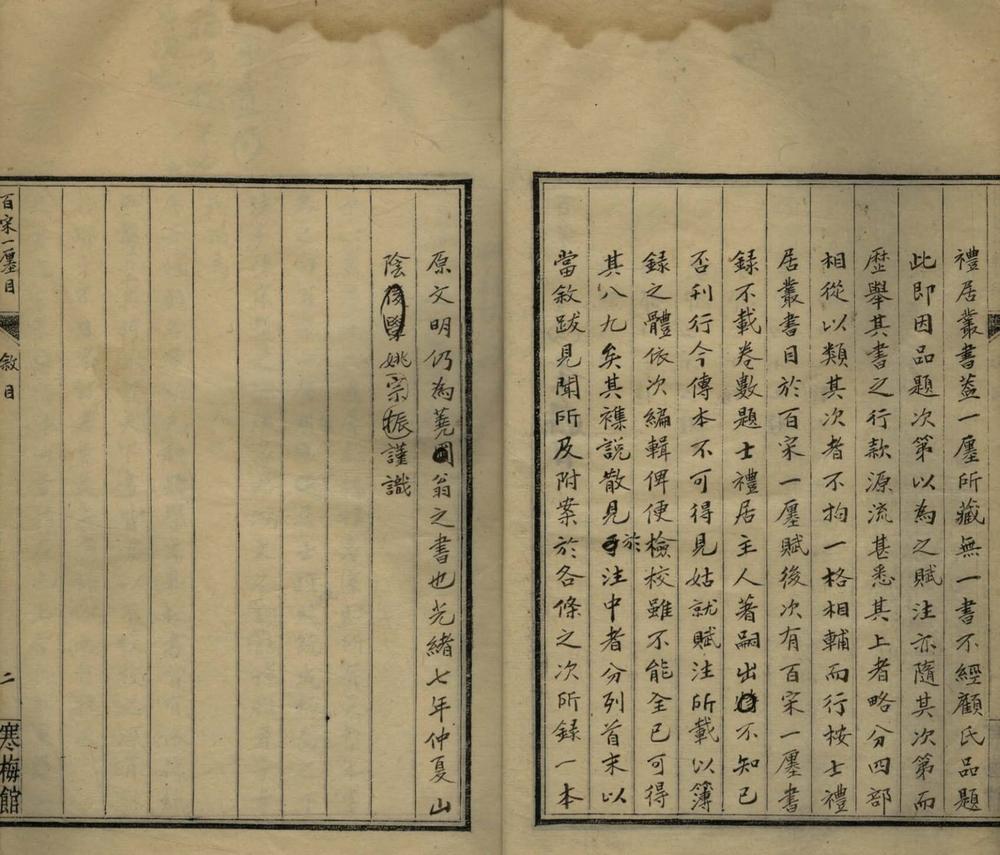 禮居叢書蓋一廛所藏無一書不經顧氏品題
此即因品題次第以為之賦注亦隨其次第而
歷舉其書之行款源流甚悉其上者略分四部
相從以類其次者不拘一格相輔而行桉士禮
居叢書目於百宋一廛賦後次有百宋一廛書
錄不載卷數題士禮居主人著嗣出不知已
否刊行今傳本不可得見姑就賦注所載以簿
錄之體依次編輯俾便檢校雖不能全已可得
其八九矣其襍說散見於注中者分列首末以
當敘跋見聞所及附案於各條之次所錄一本
原文明仍為蕘圃翁之書也光緒七年仲夏山
陰後學姚宗振謹識
百宋一廛目
敘目
二
寒梅館